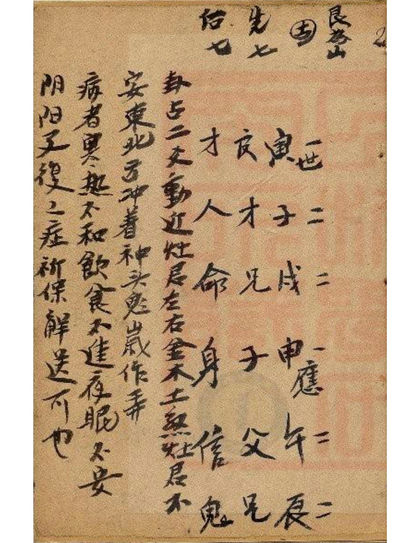 艮为山
吉
先七
一世二二一應二二
寅子戌申午辰
才兄子父兄
才人命身信鬼
卦占二爻動近灶君左右金木土煞灶君不
安東北方冲着神头鬼作弄
病者寒热不和飲食不進夜眠不安
阴阳反復之症祈保解送可也